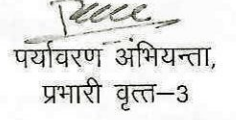 पर्यावरण अभियन्ता,
प्रभारी वृत्त–3